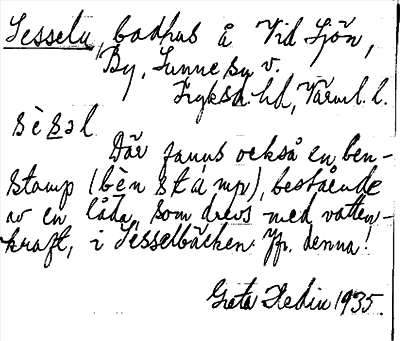 Sesseln, badhus å Vid Sjön,
By, Sunne sn v.
Fryksd. hd, Värml. l.
sèsəl
Där fanns också en ben-
stamp (bèn stámp), bestående
av en låda, som drevs med vatten-
kraft, i Sesselbäcken. Jfr. denna!
Greta Hedin 1935.